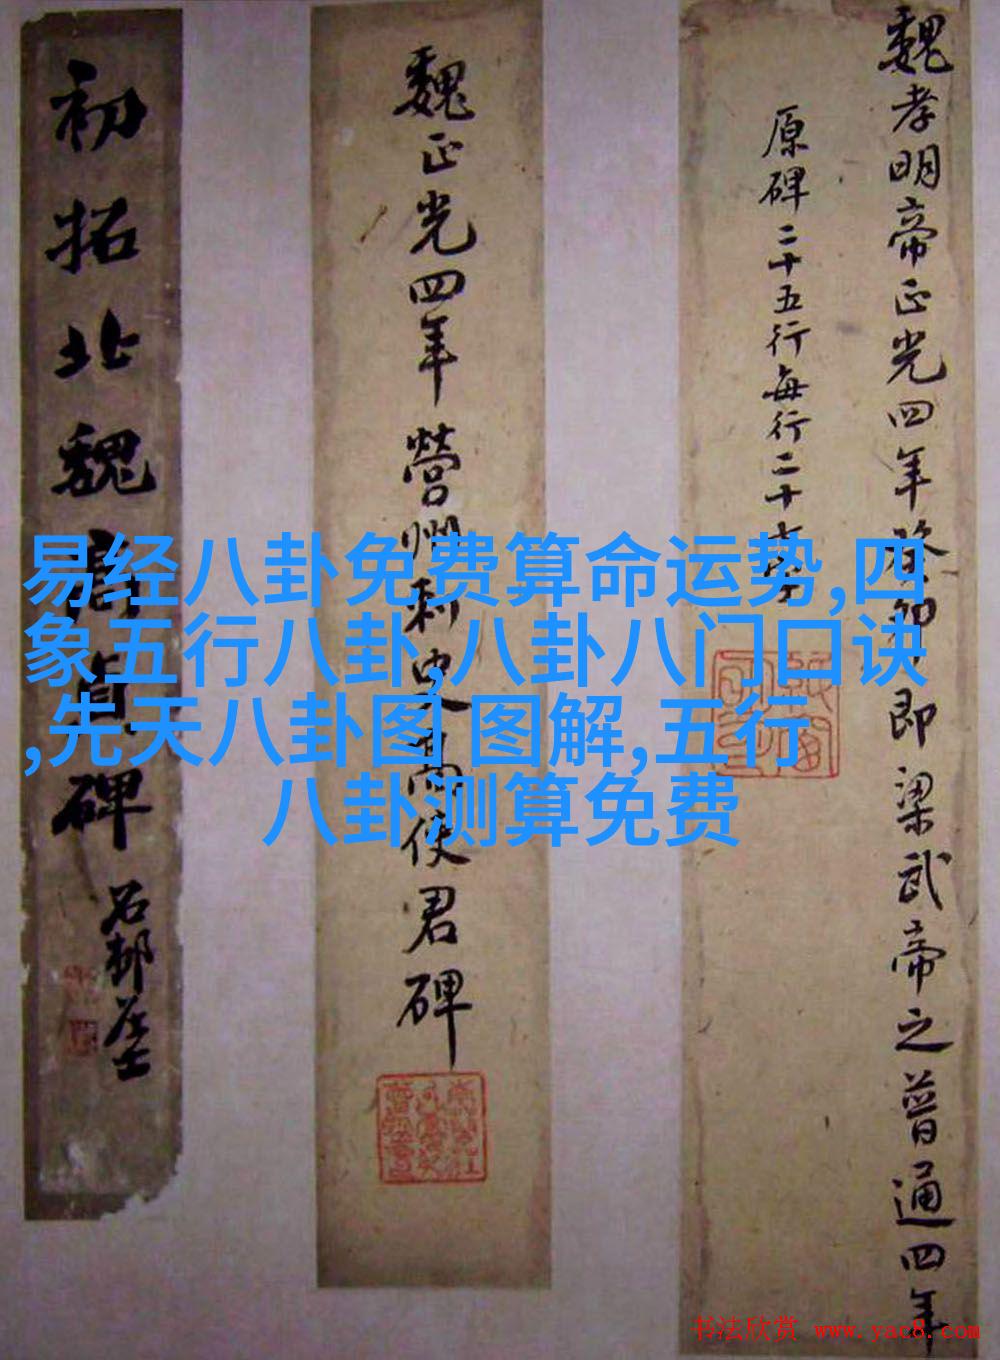 魏孝明帝正光四年癸卯即梁武帝之普通四年
原碑二十五行每行二十
魏正光四年營州刺史高使君碑
初拓北魏高貞碑
石邨居士
易经八卦免费算命运势,四
象五行八卦,八卦八门口诀
,先天八卦图 图解,五行
八卦测算免费
书法欣赏 www.yac8.com